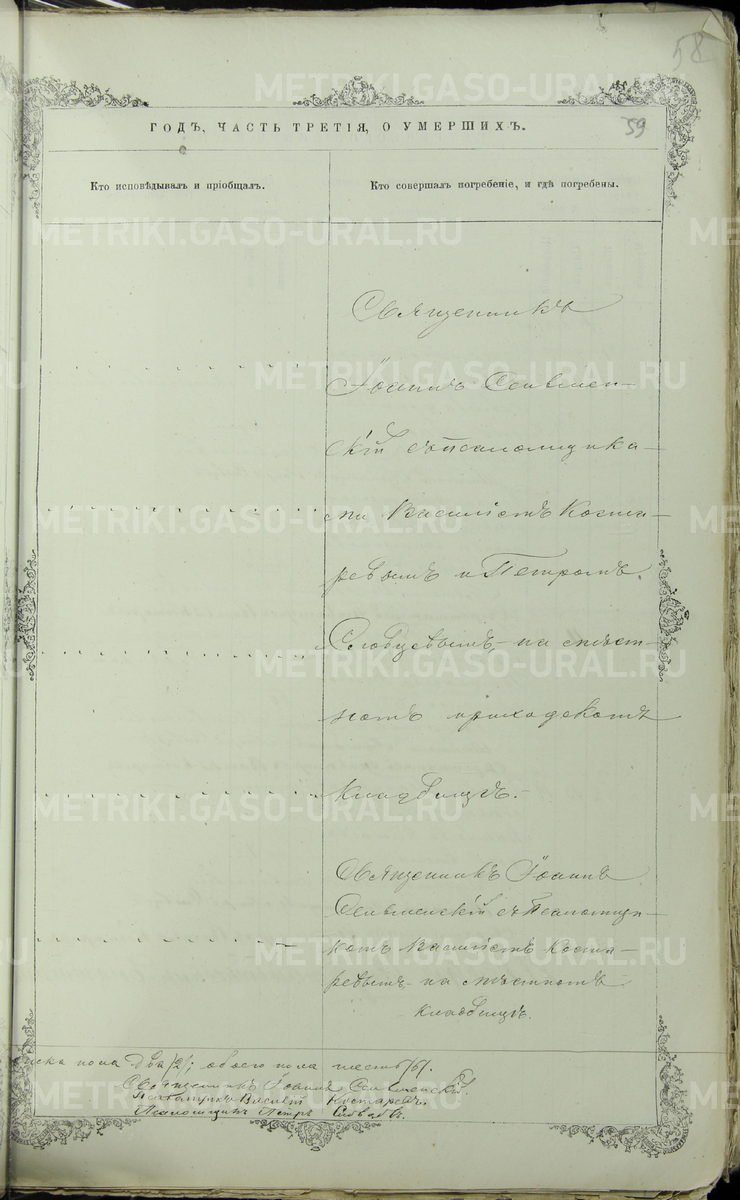 58
59
ГОДЪ, ЧАСТЬ ТРЕТІЯ, О УМЕРШИХЪ.
Кто исповѣдывалъ и пріобщалъ.
Кто совершалъ погребеніе, и гдѣ погребены.
Священникъ
Іоаннъ
скій съ псаломщика-
ми Василіемъ Коста-
ревымъ и Петромъ
Словцевымъ на мѣст-
номъ приходскомъ
кладбищѣ.
Священникъ Іоаннъ
съ Псаломщи-
комъ Василіемъ Коста-
ревымъ на мѣстномъ
кладбищѣ.
пола два /2/; обоего пола шесть /6/.
Священникъ Іоаннъ
Псаломщикъ Василій Костаревъ.
Псаломщикъ Петръ
METRIKI.GASO-URAL.RU